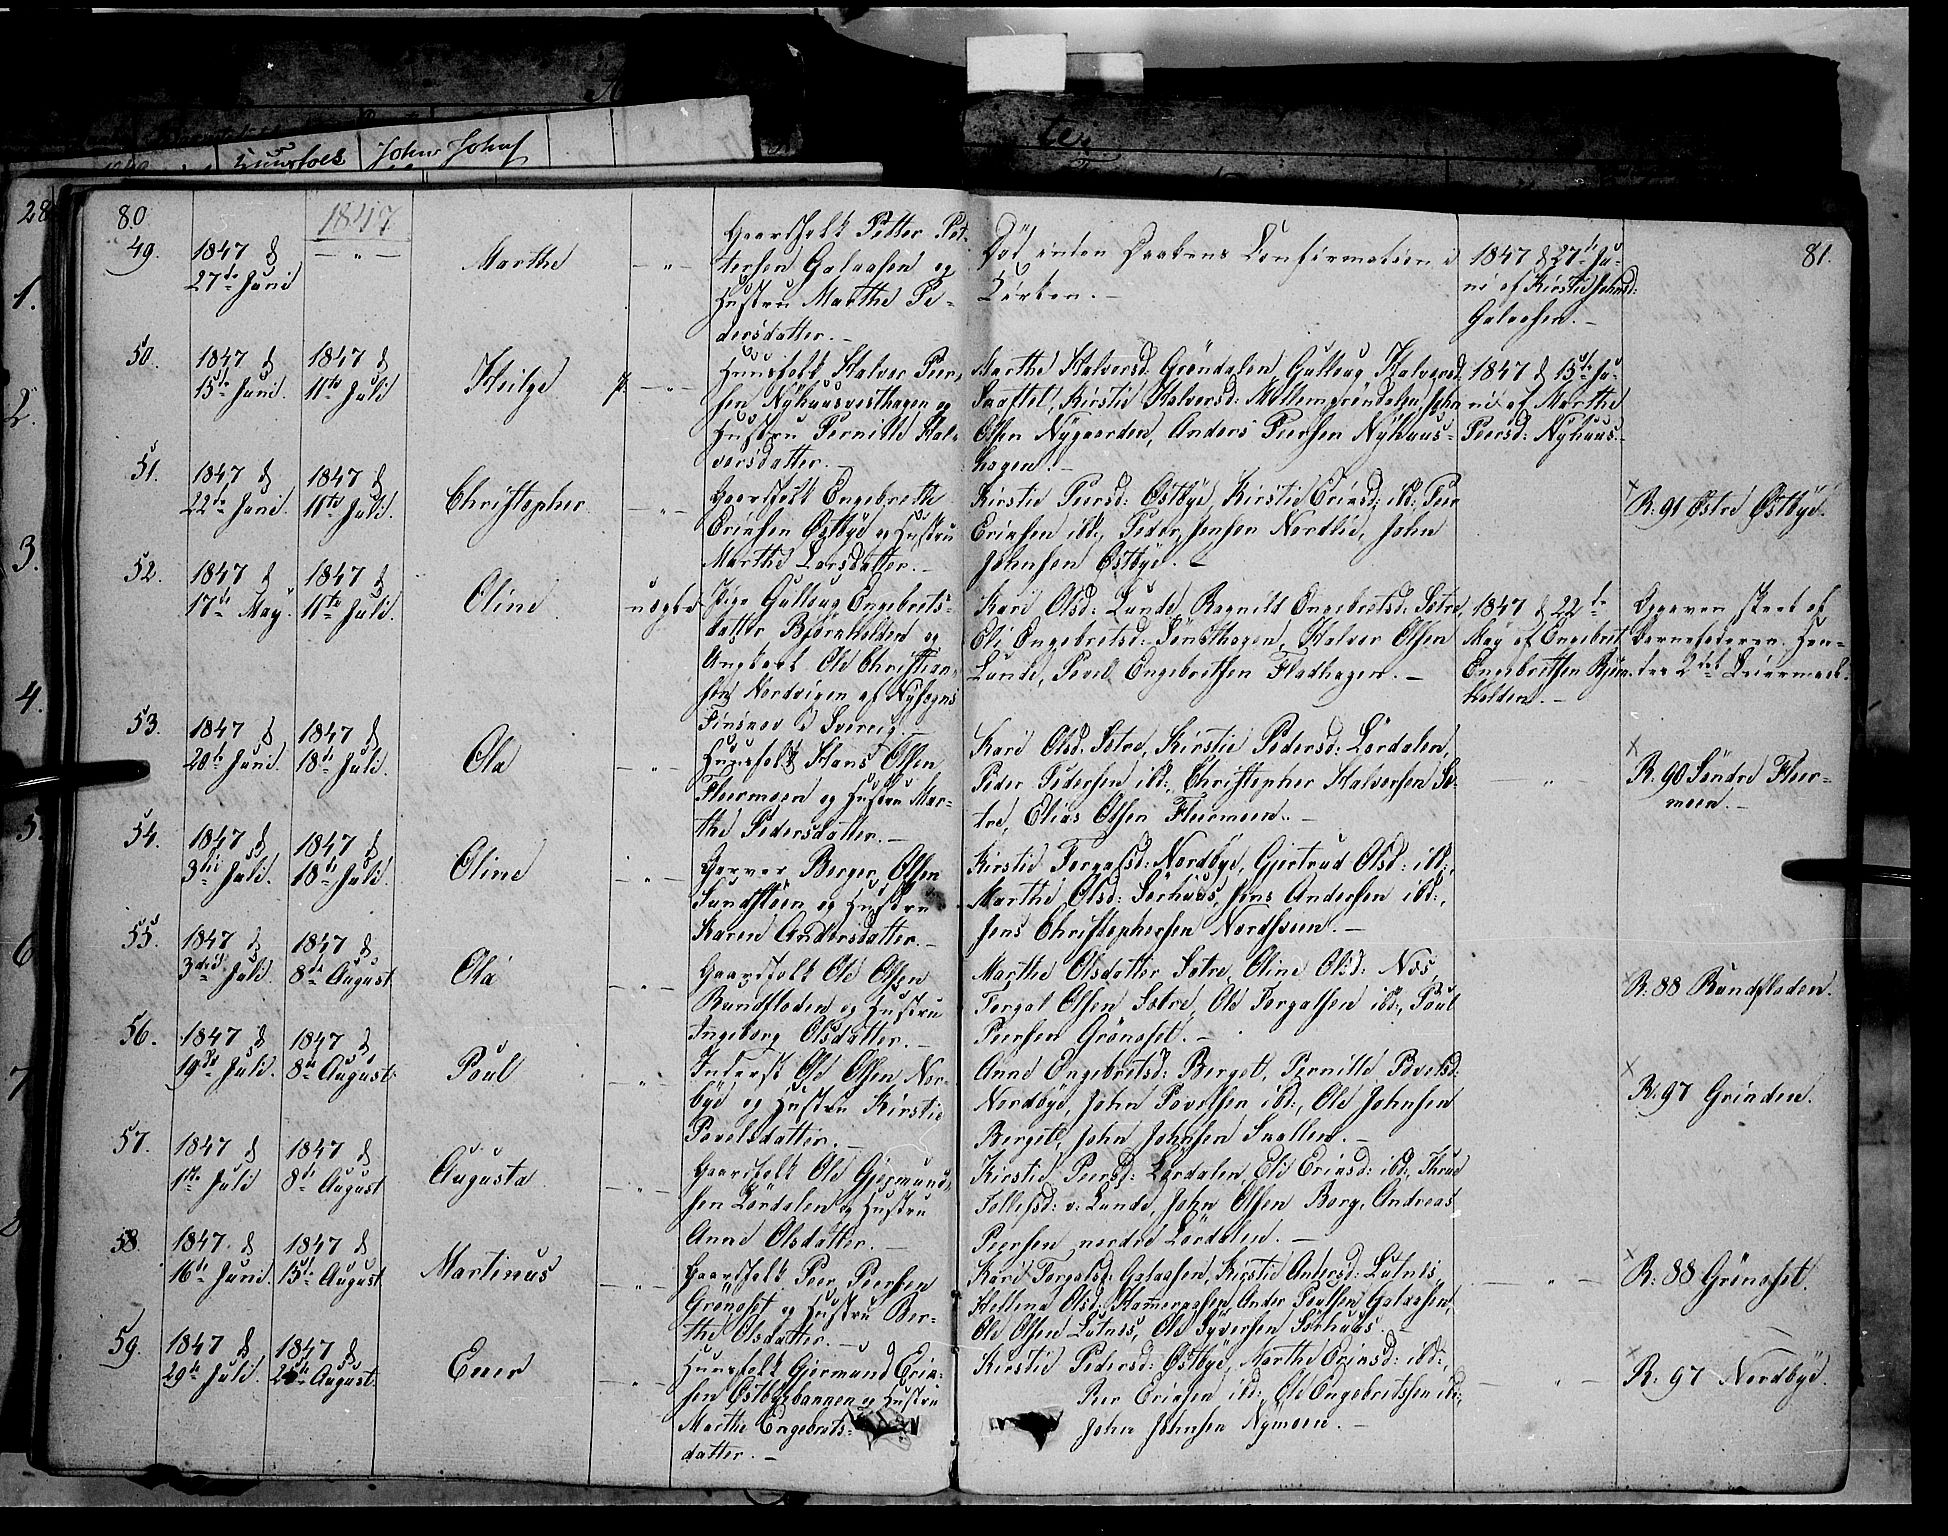 80. 1847
49. 1847 d 27de Juni — " — Marthe — " —
Gaardfolk Petter Pet-
tersen Galaasen og
Hustru Marthe Pe-
dersdatter. —
Död inden Daabens Confirmation i
Kirken. —
1847 d 27de Ju-
ni af Kirstie Johnsd:
Galaasen. —
81.
50. 1847 d 15de Juni. 1847 d 11te Juli Helge — " —
Huusfolk Halvor Peer-
sen Nÿhuusvesthagen og
Hustru Pernille Hal-
vorsdatter. —
Marthe Halvorsd. Gröndalen, Gulloug Halvorsd.
Kirstie Halvorsd: Mellemgröndalen, John
Olsen Nygaarden, Anders Peersen Nÿhuus-
hagen. —
1847 d 15de Ju-
ni af Marthe
Peersd: Nyhuus-
51. 1847 d 22de Juni. 1847 d 11te Juli. Christopher — " —
Gaardfolk Engebreth
Ericksen Östbye og Hustru
Marthe Larsdatter. —
Kirstie Peersd: Östbye, Kirstie Ericksd: ibd: Peer
Ericksen ibd:, Peder Jensen Nordlie, John
Johnsen Östbye. —
R: 91 Østre Østbÿe.
52. 1847 d 17de May. 1847 d 11te Juli. Oline uægte
Pige Gulloug Engebrets-
datter Björnholden og
Ungkarl Ole Christian-
sen Nordvigen af Nÿsogns
Finskov i Sverrig. —
Kari Olsd: Lunde, Ragnild Engebretsd: Sætre,
Eli Engebretsd: Sönsthagen, Halvor Olsen
Lunde, Povel Engebrethsen Fladhagen. —
1847 d 22de
May af Engebret
Engebrethsen Björn-
holden. —
Opgaven skeet af
Barnefaderen. Hen-
des 2det Leiermaal.
53. 1847 d 20de Juni. 1847 d 18de Juli. Ola — " —
Huusfolk Hans Olsen
Fleermoen og Hustru Mar-
the Pedersdatter. —
Kari Olsd. Sætre, Kirstie Pedersd: Lördalen,
Peder Pedersen ibd:, Christopher Halvorsen Sæ-
tre, Elias Olsen Fleermoen. —
— " —
R: 90 Söndre Fleer-
moen. —
54. 1847 d 3die Juli. 1847 d 18de Juli. Oline — " —
Garver Berger Olsen
Sundsteen og Hustru
Karen Andersdatter. —
Kirstie Torgalsd: Nordbye, Gjertrud Olsd: ibd:,
Marthe Olsd: Sörhuus, Jens Andersen ibd:,
Jens Christophersen Nordhseen. —
55. 1847 d 3die Juli. 1847 d 8de August Ola — " —
Gaardfolk Ole Olsen
Rundfloden og Hustru
Ingeborg Olsdatter. —
Marthe Olsdatter Sætre, Oline Olsd: Næs,
Torgal Olsen Sætre, Ole Torgalsen ibd:, Poul
Peersen Grönoset. —
R: 88 Rundfloden.
56. 1847 d 19de Juli. 1847 d 8de August. Poul — " —
Inderst Ole Olsen Nor-
bye og Hustru Kirstie
Povelsdatter. —
Anne Engebretsd: Berget, Pernille Povelsd:
Nordbye, John Povelsen ibd:, Ole Johnsen
Berget, John Johnsen Snollen. —
R: 97 Grinden.
57. 1847 d 1ste Juli 1847 d 8de August Augusta — " —
Gaardfolk Ole Gjermund-
sen Lördalen og Hustru
Anne Olsdatter. —
Kirstie Peersd: Lördalen, Eli Ericksd: ibd:,
Tollefsd: v: Lunde, John Olsen Borg, Andreas
Peersen nordre Lördalen. —
58. 1847. d 16de Juni. 1847 d 15de August. Martinus — " —
Gaardfolk Peer Peersen
Grönoset og Hustru Ber-
the Olsdatter. —
Kari Torgalsd: Galaasen, Kirstie Andersd: Lutnes,
Hellena Olsd: Hammeraasen, Ander Poulsen Galaasen,
Ole Olsen Lutnes, Ole Syversen Sörhuus. —
— " —
R: 88 Grönoset.
59. 1847 d 29de Juli. 1847 d 25de August. Ener — " —
Huusfolk Gjermund Erick-
sen Östbybannen og Hustru
Marthe Engebrets-
datter. —
Kirstie Pedersd: Östbye, Marthe Ericksd: ibd:,
Peer Ericksen ibd:, Ole Engebretsen ibd:,
John Johnsen Nymoen. —
— " —
R. 97 Nordbÿe.